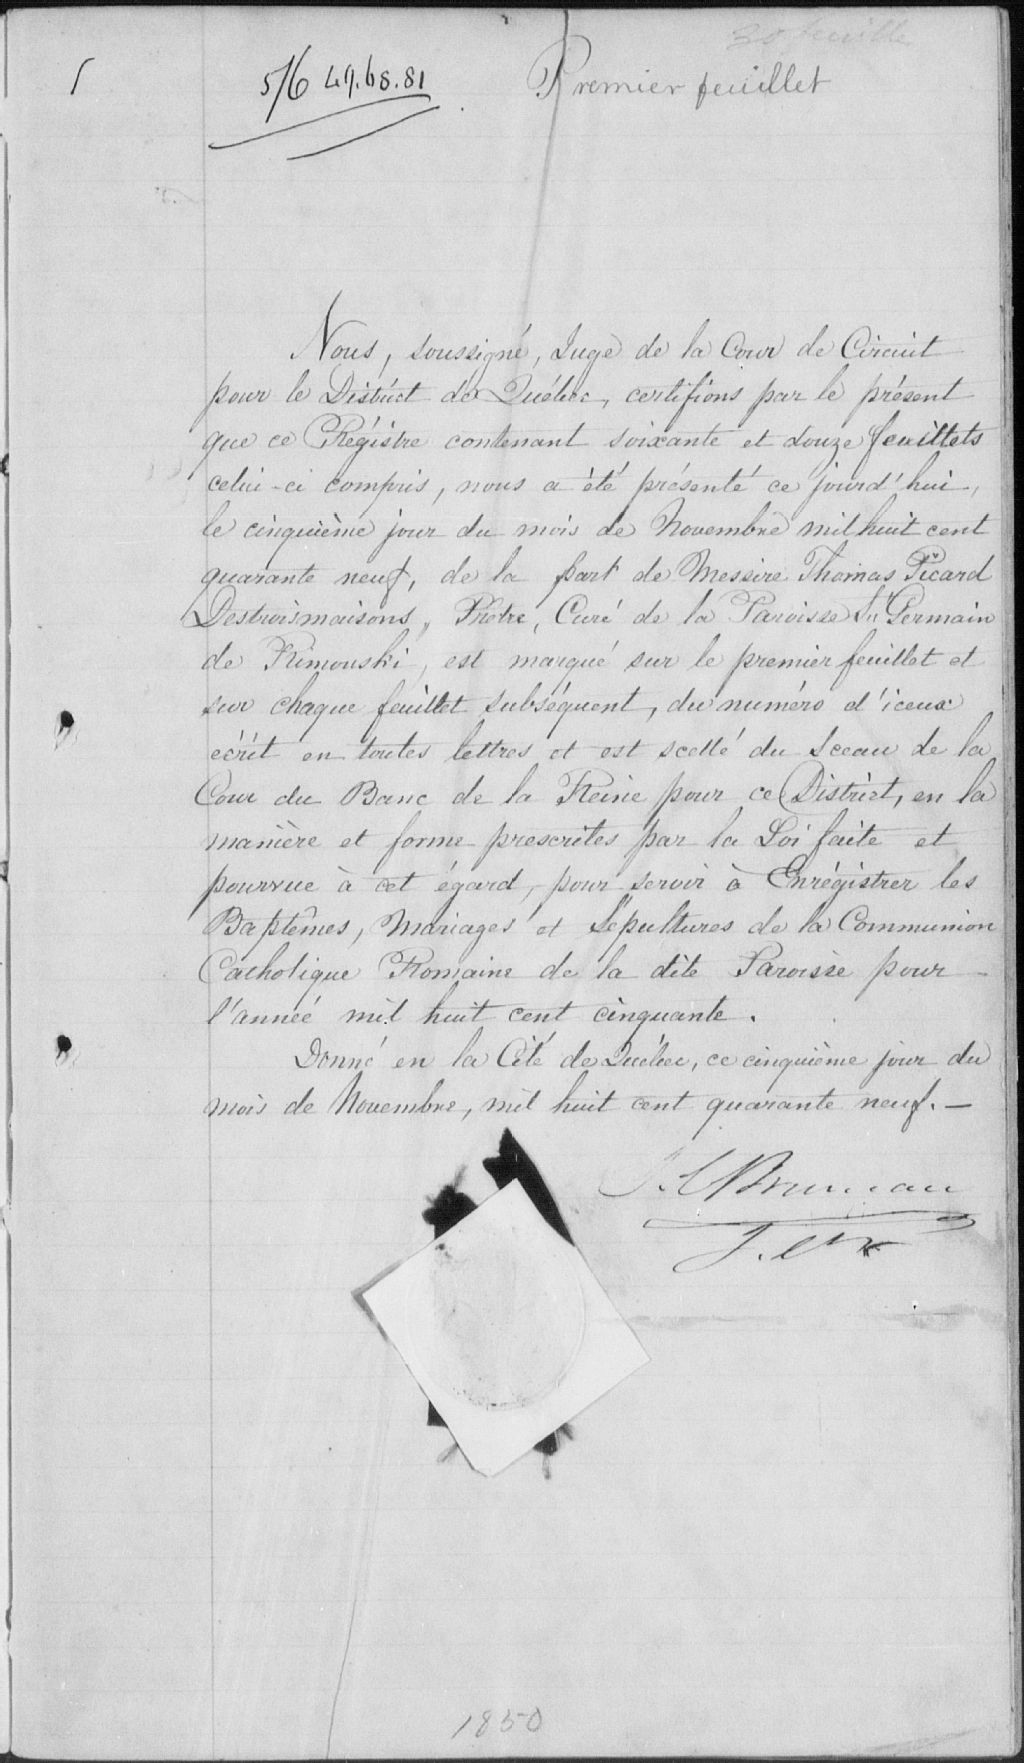 30 feuille
516 49.68.81
Premier feuillet
Nous, soussigné, Juge de la Cour de Circuit
pour le District de Québec, certifions par le présent
que ce Régistre contenant soixante et douze feuillets
celui-ci compris, nous a été présenté ce jourd'hui,
le cinquième jour du mois de Novembre mil huit cent
quarante neuf, de la part de Messire Thomas Picard
Destroismaisons, Prêtre, Curé de la Paroisse St Germain
de Rimouski, est marqué sur le premier feuillet et
sur chaque feuillet subséquent, du numéro d'iceux
écrit en toutes lettres et est scellé du Sceau de la
Cour du Banc de la Reine pour ce District, en la
manière et forme prescrites par la Loi faite et
pourvue à cet égard, pour servir à Enrégistrer les
Baptêmes, Mariages et Sépultures de la Communion
Catholique Romaine de la dite Paroisse pour
l'année mil huit cent cinquante.
Donné en la Cité de Québec, ce cinquième jour du
mois de Novembre, mil huit cent quarante neuf. —
Bruneau
1850